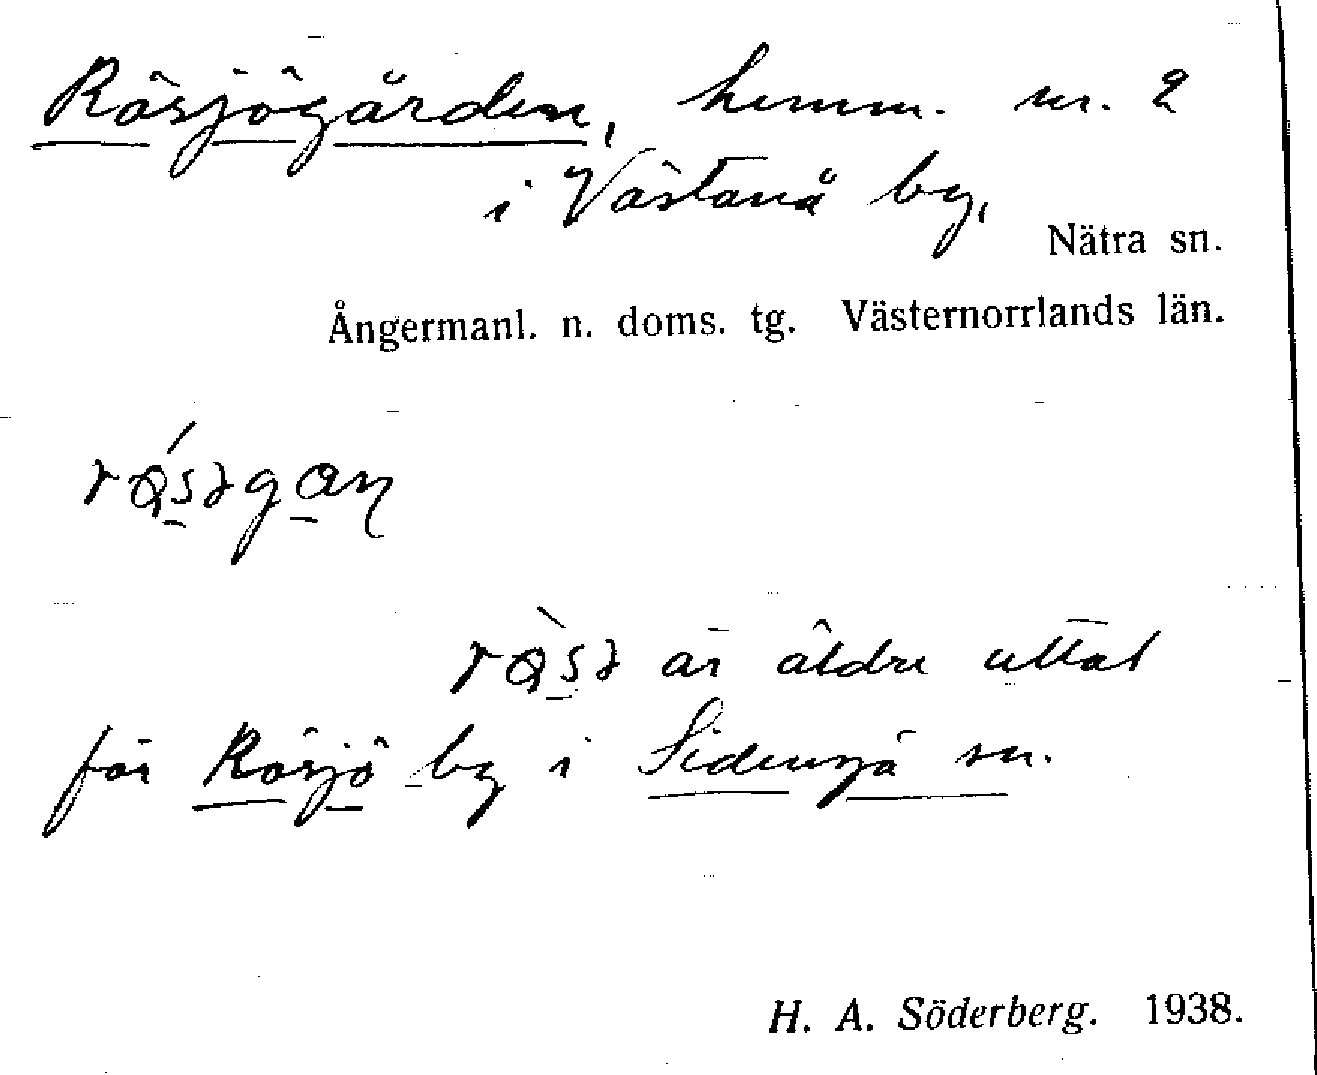 Rösjögården, hemm. nr. 2
i Västanå by,
Nätra sn.
Ångermanl. n. doms. tg. Västernorrlands län.
är äldre uttal
för Rösjö by i Sidensjö sn.
H. A. Söderberg. 1938.